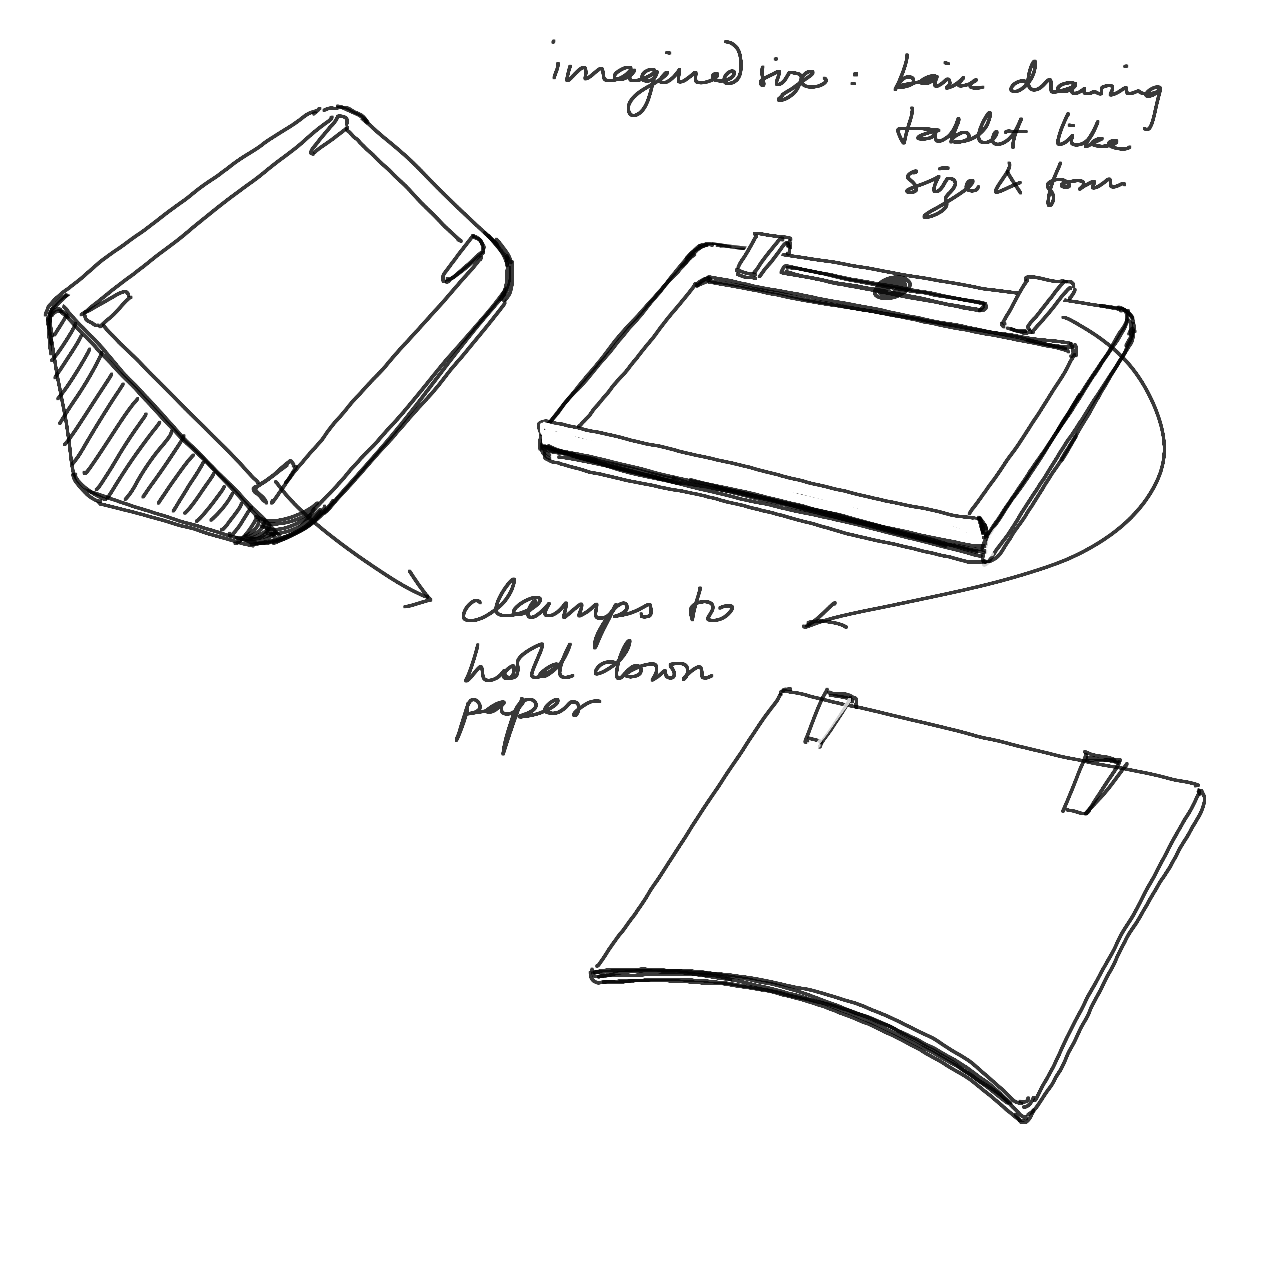 imagined size : basic drawing
tablet like
size & form
clamps to
hold down
paper